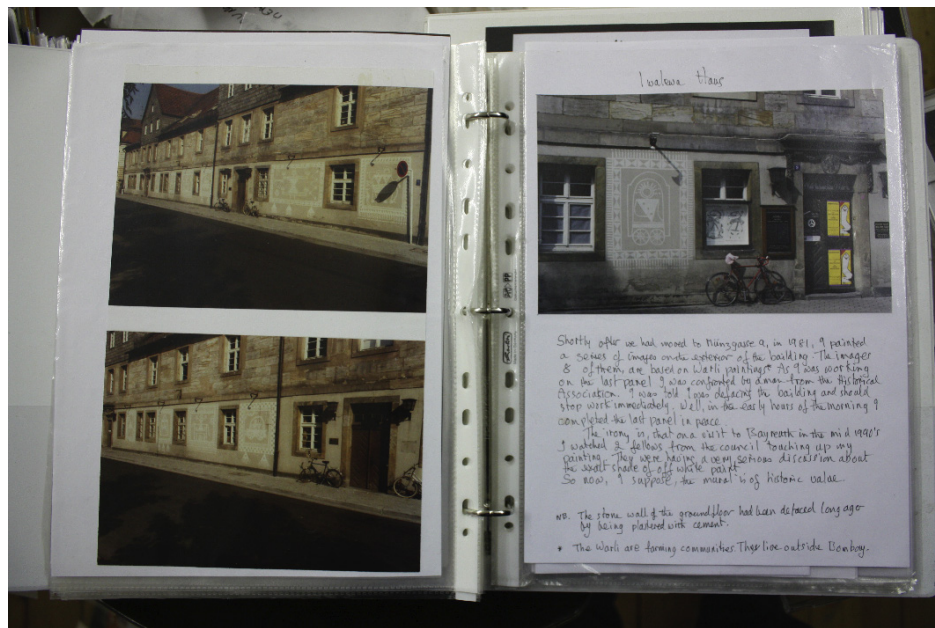 Iwalewa Haus
Shortly after we had moved to Münzgasse 9, in 1981, I painted
a series of images on the exterior of the building. The images
8 of them, are based on Warli paintings*. As I was working
on the last panel I was confronted by a man from the Historical
Association. I was told I was defacing the building and should
stop work immediately. Well, in the early hours of the morning I
completed the last panel in peace.
The irony is, that on a visit to Bayreuth in the mid 1990's
I watched 2 fellows from the council touching up my
painting. They were having a very serious discussion about
the exact shade of off white paint.
So now, I suppose, the mural is of historic value.
NB. The stone wall of the groundfloor had been defaced long ago
by being plastered with cement.
* The Warli are farming communities. They live outside Bombay.